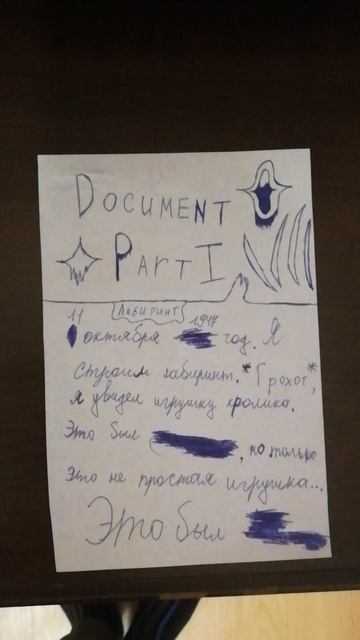 DOCUMENT
PART I
ЛАБИРИНТ
11 октября 1947 год. Я
строил лабиринт. *Грохот*,
я увидел игрушку кролика.
Это был , но только
Это не простая игрушка...
Это был